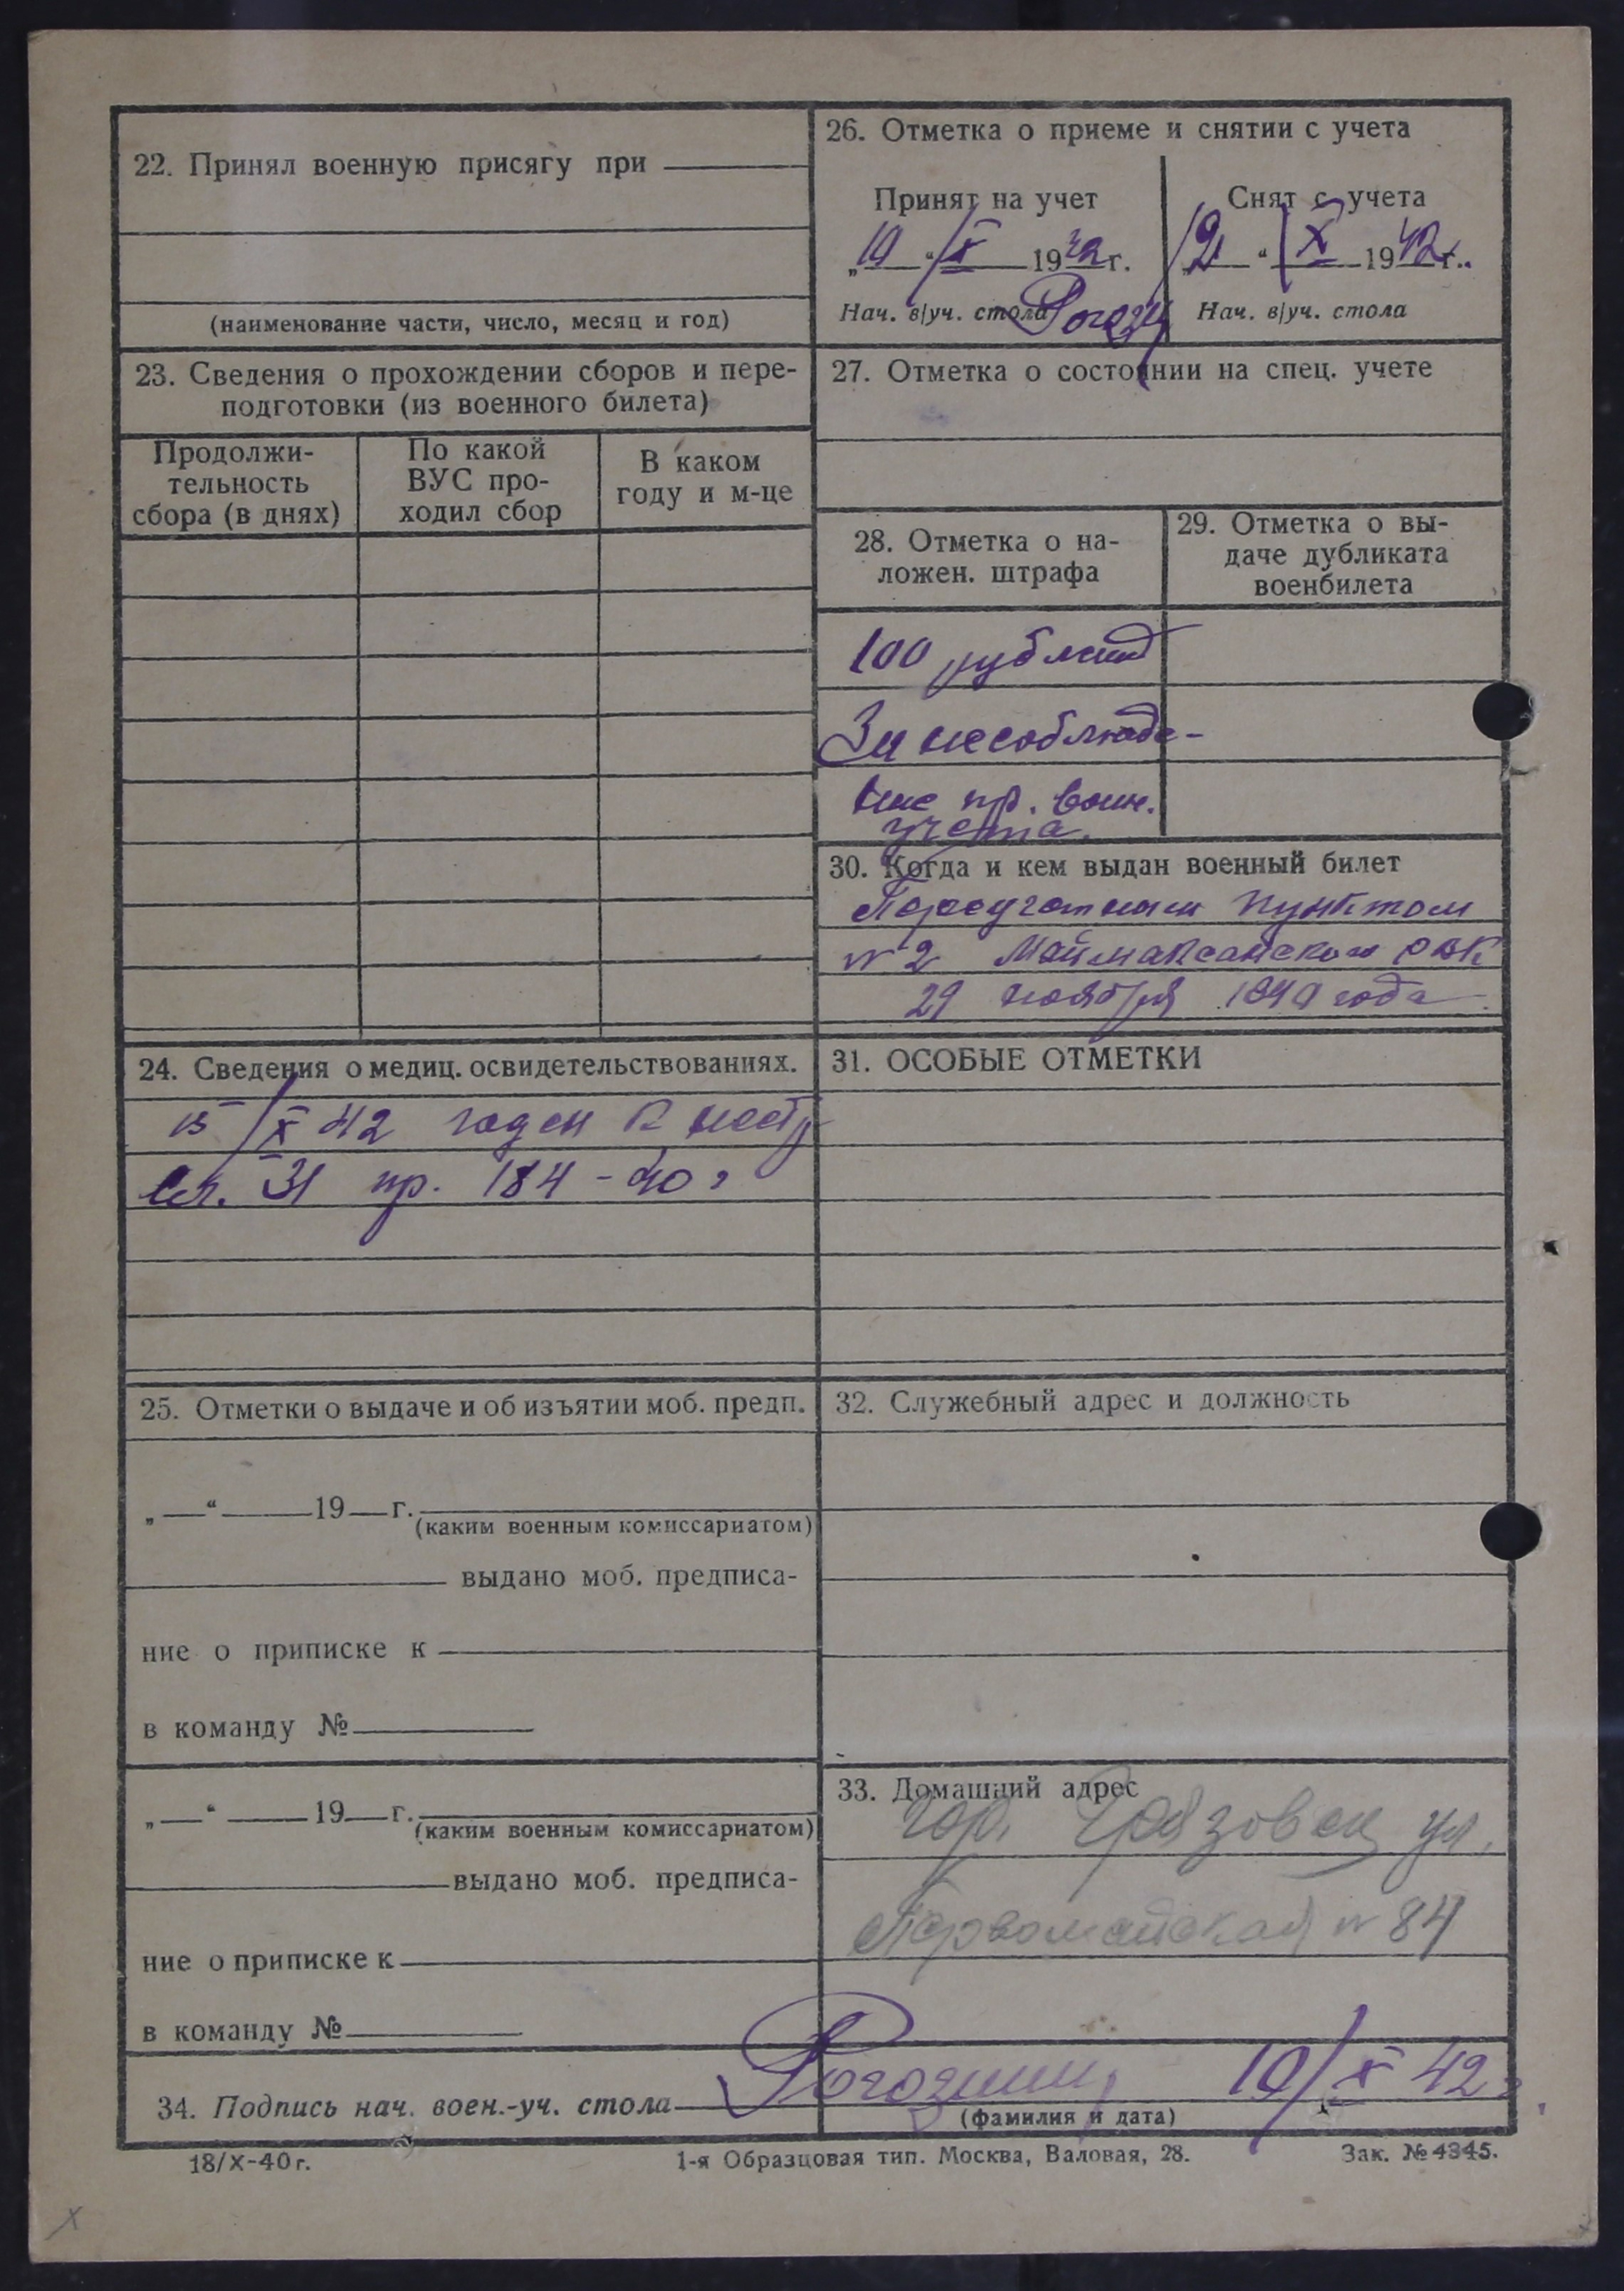 22. Принял военную присягу при
(наименование части, число, месяц и год)
23. Сведения о прохождении сборов и пере-
подготовки (из военного билета)
Продолжи-
тельность
сбора (в днях)
По какой
ВУС про-
ходил сбор
В каком
году и м-це
24. Сведения о медиц. освидетельствованиях.
15/X 42 годен к нестр
Ст. 31 пр. 184-40г
25. Отметки о выдаче и об изъятии моб. предп.
„ — “ — 19 — г.
(каким военным комиссариатом)
выдано моб. предписа-
ние о приписке к
в команду №
„ — “ — 19 — г.
(каким военным комиссариатом)
выдано моб. предписа-
ние о приписке к
в команду №
26. Отметка о приеме и снятии с учета
Принят на учет
„10“/X 1942г.
Нач. в/уч. стола
Снят с учета
X 1942г.
Нач. в/уч. стола
27. Отметка о состоянии на спец. учете
28. Отметка о на-
ложен. штрафа
100 рублей
За несоблюде-
ние пр. воин.
учета.
29. Отметка о вы-
даче дубликата
военбилета
30. Когда и кем выдан военный билет
Переучетным пунктом
№2 Маймаксанского РВК
29 ноября 1940 года
31. ОСОБЫЕ ОТМЕТКИ
32. Служебный адрес и должность
33. Домашний адрес
гор. Грязовец ул.
Первомайская №84
34. Подпись нач. воен.-уч. стола Рогозин 10/X 42г.
(фамилия и дата)
18/X-40 г.
1-я Образцовая тип. Москва, Валовая, 28.
Зак. № 4345.